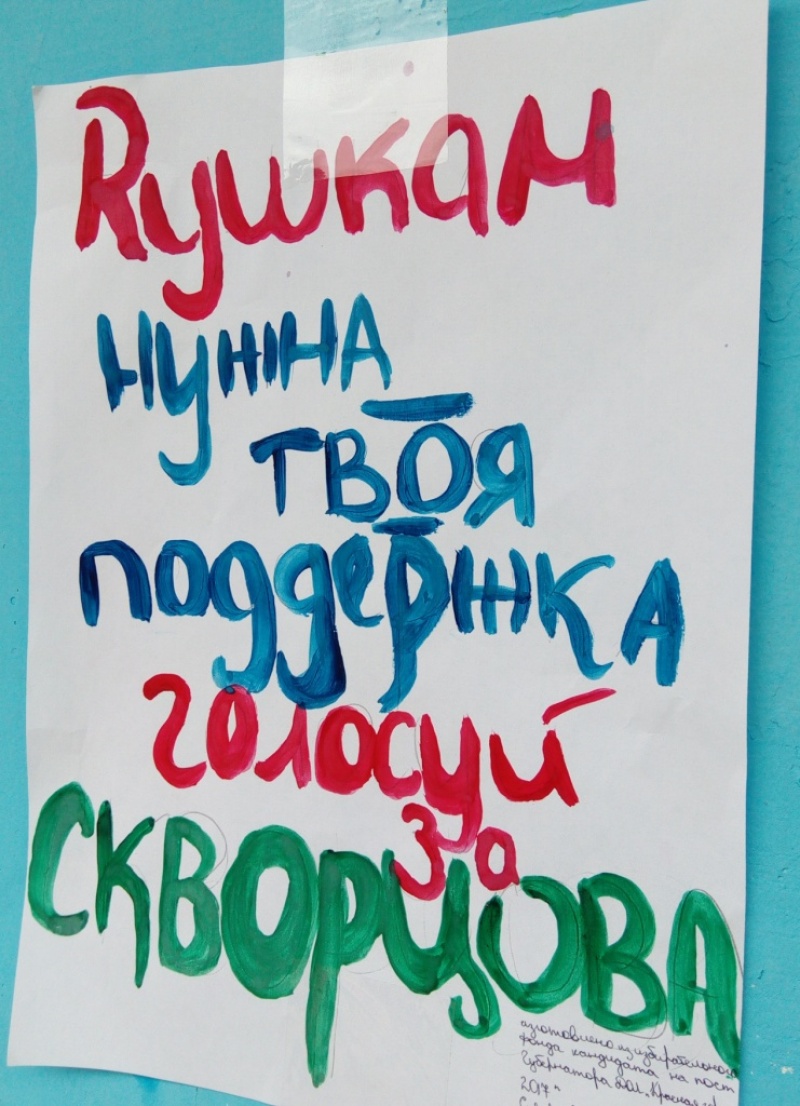 Яушкам
нужна
твоя
поддержка
голосуй
за
СКВОРЦОВА
изготовлено из избирательного
фонда кандидата на пост
Губернатора ДОЛ
2017г